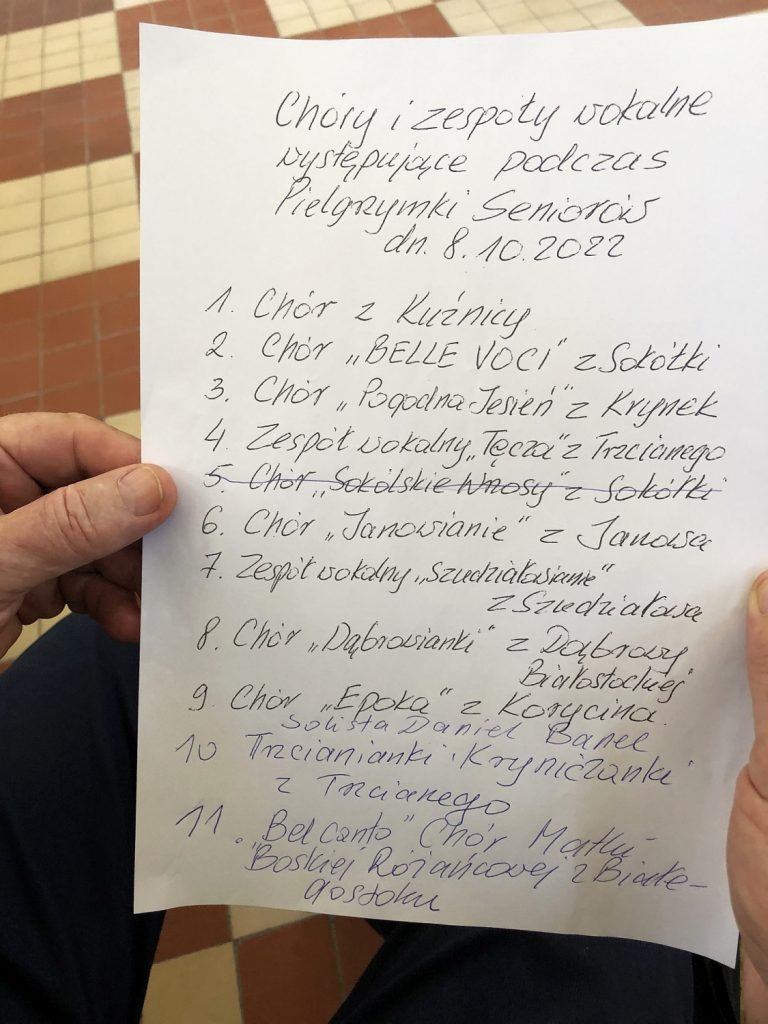 Chóry i zespoły wokalne
występujące podczas
Pielgrzymki Seniorów
dn. 8.10.2022
1. Chór z Kuźnicy
2. Chór „BELLE VOCI" z Sokółki
3. Chór „Pogodna Jesień" z Krynek
4. Zespół wokalny „Tęcza" z Trzcianego
5. Chór „Sokólskie Wrzosy" z Sokółki
6. Chór „Janowianie" z Janowa
7. Zespół wokalny „Szudziałowianie"
z Szudziałowa
8. Chór „Dąbrowianki" z Dąbrowy
Białostockiej
9 Chór „Epoka" z Korycina
Solista Daniel Banel
10 Trzcianianki i Kryniczanki
z Trzcianego
11. „Bel canto" Chór Matki
Boskiej Różańcowej z Białe-
gostoku